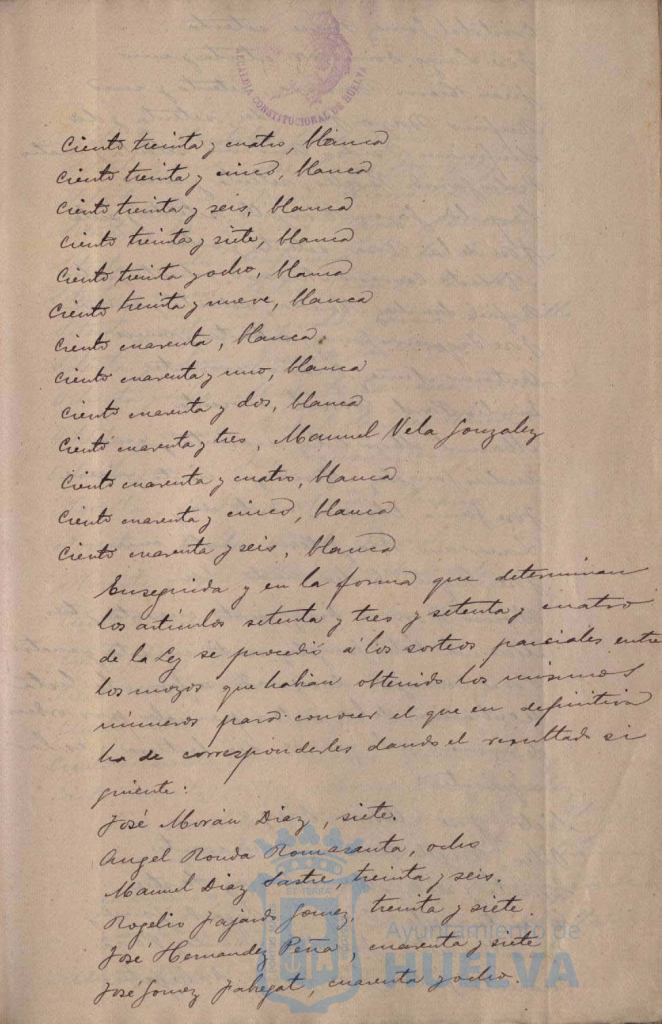 ALCALDIA CONSTITUCIONAL DE HUELVA
Ciento treinta y cuatro, blanca
Ciento treinta y cinco, blanca
Ciento treinta y seis, blanca
Ciento treinta y siete, blanca
Ciento treinta y ocho, blanca
Ciento treinta y nueve, blanca
Ciento cuarenta, blanca.
Ciento cuarenta y uno, blanca
Ciento cuarenta y dos, blanca
Ciento cuarenta y tres, Manuel Vela Gonzalez
Ciento cuarenta y cuatro, blanca
Ciento cuarenta y cinco, blanca
Ciento cuarenta y seis, blanca
Enseguida y en la forma que determinan
los artículos setenta y tres y setenta y cuatro
de la Ley se procedió á los sorteos parciales entre
los mozos que habian obtenido los mismos
números para conocer el que en definitiva
ha de corresponderles dando el resultado si
guiente:
José Morán Diaz, siete.
Angel Ronda Romasanta, ocho
Manuel Diaz Sastre, treinta y seis.
Rogelio Fajardo Gomez, treinta y siete.
José Hernandez Peña, cuarenta y siete
José Gomez Fabregat, cuarenta y ocho.
Ayuntamiento de
HUELVA